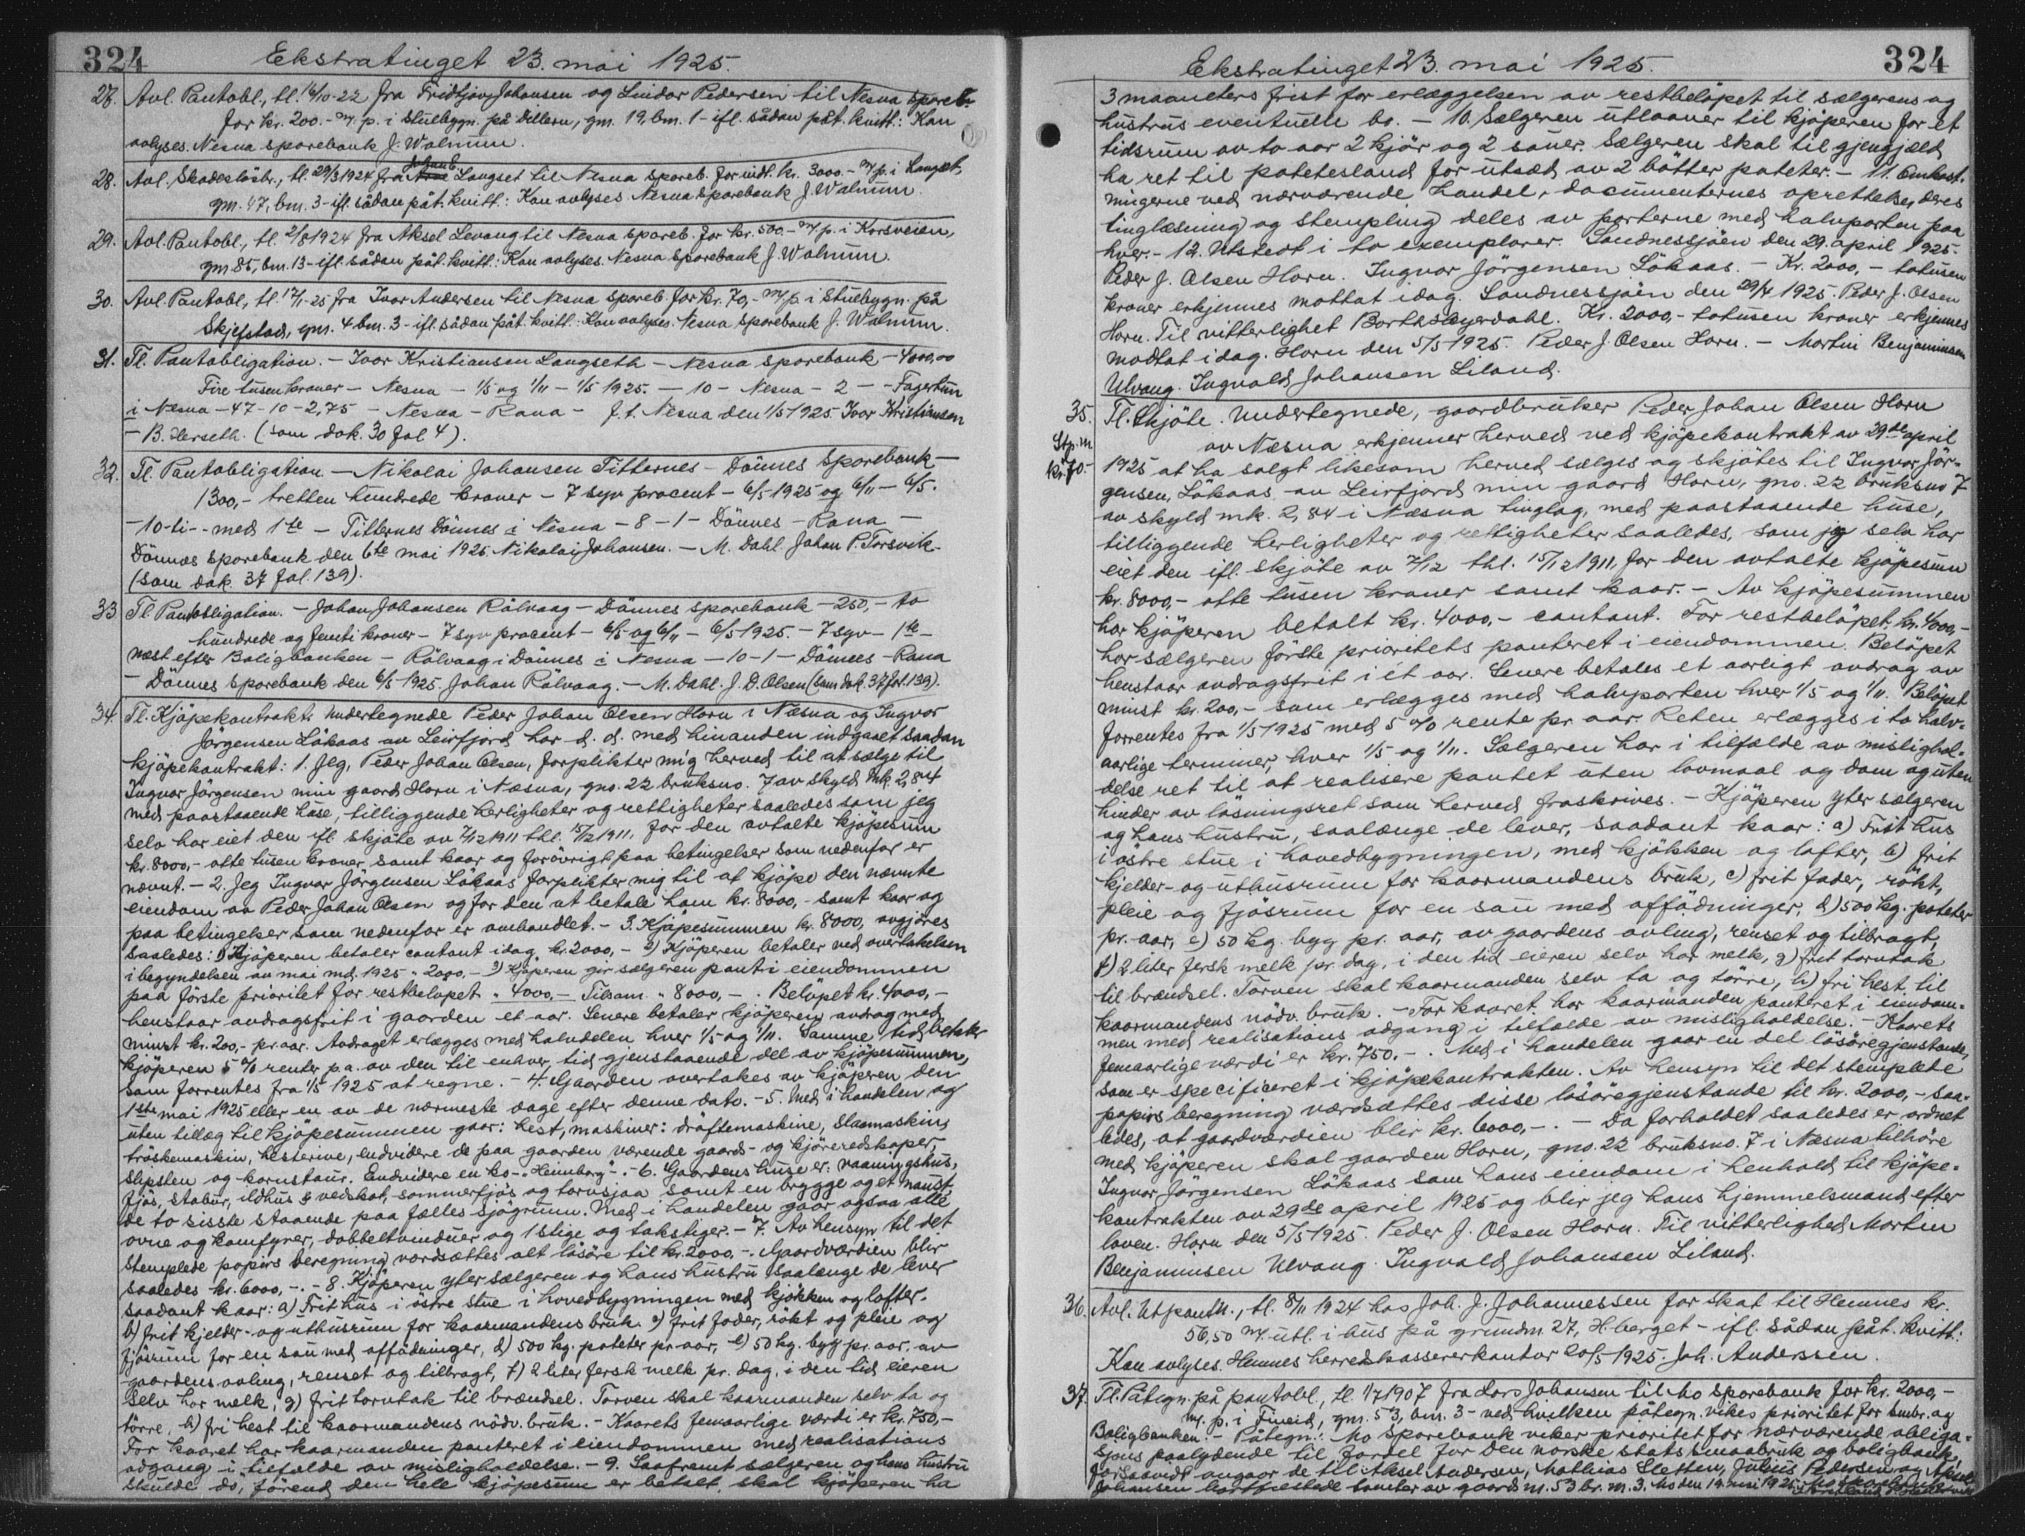 324
Ekstratinget 23. mai 1925.
27. Avl. Pantobl., tl. 14/10-22 fra Fridtjov Johansen og Lindor Pedersen til Nesna spareb.
for kr. 200.- m. p. i stuebygn. på Dillern, gm. 19, bm. 1 - ifl. sådan påt. kvitt: Kan
avlyses. Nesna sparebank J. Walnum.
28. Avl. Skadeslösbr., tl. 29/3 1924 fra Johan Langset til Nesna spareb. for indt. kr. 3000.- m/p. i Langset,
gm. 47, bm. 3 - ifl. sådan påt. kvitt.: Kan avlyses Nesna sparebank J. Walnum.
29. Avl. Pantobl., tl. 2/8 1924 fra Aksel Levang til Nesna spareb. for kr. 500.- m. p. i Korsveien,
gm. 85, bm. 13 - ifl. sådan påt. kvitt.: Kan avlyses. Nesna sparebank J. Walnum.
30. Avl. Pantobl., tl. 17/1-25 fra Ivar Andersen til Nesna spareb. for kr. 70,- m/p. i stuebygn. på
Skjefstad, gm. 4 bm. 3 - ifl. sådan påt. kvitt.: Kan avlyses. Nesna sparebank J. Walnum.
31. Tl. Pantobligation. - Ivar Kristiansen Langseth - Nesna sparebank, - 4000,00
Fire tusen kroner - Nesna - 1/5 og 1/11 - 1/5 1925. - 10 - Nesna - 2 - - Fagertun
i Nesna - 47 - 10 - 2,75 - Nesna - Rana - f. t. Nesna den 1/5 1925 Ivar Kristiansen
- B. Herseth. (som dok. 30 fol 4).
32. Tl. Pantobligation - Nikolai Johansen Titternes - Dönnes sparebank -
1300,- tretten hundrede kroner - 7 syv procent - 6/5-1925 og 6/11 - 6/5.
- 10-ti- - med 1te - Titternes Dönnes i Nesna - 8 - 1 - Dönnes - Rana -
Dönnes sparebank den 6te mai 1925. Nikolai Johansen. - M. Dahl. Johan P. Torsvik.
(som dok. 37 fol. 139).
33 Tl. Pantobligation. - Johan Johansen Rölvaag - Dönnes sparebank - 250,- to
hundrede og femti kroner - 7 syv procent - 6/5 og 6/11 - 6/5 1925. - 7 syv - 1te -
næst efter Boligbanken - Rölvaag i Dönnes i Nesna - 10 - 1 - Dönnes - Rana
- Dönnes sparebank den 6/5 1925. Johan Rölvaag. - M. Dahl. J. D. Olsen (som dok. 37 fol. 139).
34. Tl. Kjöpekontrakt: Undertegnede Peder Johan Olsen Horn i Næsna og Ingvar
Jörgensen Lökaas av Leirfjord har d. d. med hinanden indgaaet saadan
kjöpekontrakt: 1. Jeg, Peder Johan Olsen, forplikter mig herved til at sælge til
Ingvar Jörgensen min gaard Horn i Næsna, gno. 22 bruksno. 7 av skyld mk. 2,84
med paastaaende huse, tilliggende herligheter og rettigheter saaledes som jeg
selv har eiet den ifl. skjöte av 7/12 1911 thl. 15/12 1911, for den avtalte kjöpesum
kr. 8000,- otte tusen kroner, samt kaar og forövrigt paa betingelser som nedenfor er
nævnt. - 2. Jeg Ingvar Jörgensen Lökaas forplikter mig til at kjöpe den nævnte
eiendom av Peder Johan Olsen og for den at betale ham kr. 8000,- samt kaar og
paa betingelser som nedenfor er omhandlet. - 3. Kjöpesummen kr. 8000, avgjöres
saaledes: 1) Kjöperen betaler contant idag kr. 2000,- 2) Kjöperen betaler ved overtakelsen
i begyndelsen av mai md. 1925 " 2000,- 3) Kjöperen gir sælgeren pant i eiendommen
paa förste prioritet for restbelöpet " 4000,- Tilsam. " 8000,- . Belöpet kr. 4000,-
henstaar avdragsfrit i gaarden et aar. Senere betaler kjöperen avdrag med
minst kr. 200,- pr. aar. Avdraget erlægges med halvdelen hver 1/5 og 1/11. Samme tid betaler
kjöperen 5 % renter p.a. av den til enhver tid gjenstaaende del av kjöpesummen,
som forrentes fra 1/5 1925 at regne. - 4. Gaarden overtakes av kjöperen den
1ste mai 1925 eller en av de nærmeste dage efter denne dato. - 5. Med i handelen og
uten tillæg til kjöpesummen gaar: hest, maskiner: dröftemaskine, slaamaskine,
tröskemaskin, hesterive, endvidere de paa gaarden værende gaards- og kjöreredskaper,
slipsten og kornstaur. Endvidere en ko - "Heimborg". - 6. Gaardens huse er vaaningshus,
fjös, stabur, ildhus & vedskot, sommerfjös og torvsjaa samt en brygge og et naust,
de to sisste staaende paa fælles sjögrunn. Med i handelen gaar ogsaa alle
ovne og komfyrer, dobbeltvinduer og 1 stige og takstiger. - 7. Av hensyn til det
stemplede papirs beregning værdsættes alt lösöre til kr. 2000,-. Gaardværdien blir
saaledes kr. 6000,-. - 8. Kjöperen yter sælgeren og hans hustru saalænge de lever
saadant kaar: a) Frit hus i östre stue i hovedbygningen med kjökken og lofter.
b) frit kjelder- og uthusrum for kaarmandens bruk c) frit foder, rökt og pleie og
fjösrum for en sau med affödninger, d) 500 kg. poteter pr. aar, e) 50 kg. byg pr. aar, av
gaardens avling, renset og tilbragt, f) 2 liter fersk melk pr. dag, i den tid eieren
selv har melk, g) frit torvtak til brændsel. Torven skal kaarmanden selv ta og
törre, h) fri hest til kaarmandens nödv. bruk. - Kaarets femaarlige værdi er kr. 750,-
For kaaret har kaarmanden panteret i eiendommen med realisations
adgang i tilfælde av misligholdelse. - 9. Saafremt sælgeren og hans hustru
skulde dö, förend den hele kjöpesum er betalt, skal kjöperen ha
324
Ekstratinget 23. mai 1925.
3 maaneders frist for erlæggelsen av restbelöpet til sælgerens og
hustrus eventuelle bo. - 10. Sælgeren utlaaner til kjöperen for et
tidsrum av to aar 2 kjör og 2 sauer. Sælgeren skal til gjengjæld
ha ret til potetesland for utsæd av 2 bötter poteter. - 11. Omkost-
ningerne ved nærværende handel, documenternes oprettelse, deres
tinglæsning og stempling deles av parterne med halvparten paa
hver. - 12. Utstedt i to exemplarer. Sandnessjöen den 29. april 1925.
Peder J. Olsen Horn. Ingvar Jörgensen Lökaas. - Kr. 2000,- totusen
kroner erkjennes mottat idag. Sandnessjöen den 29/4 1925. Peder J. Olsen
Horn. Til vitterlighet Borth. Kr. 2000,- totusen kroner erkjennes
modtat idag. Horn den 5/5 1925. Peder J. Olsen Horn. - Martin Benjaminsen
Ulvang. Ingvald Johansen Liland.
35. Tl. Skjöte. Undertegnede, gaardbruker Peder Johan Olsen Horn
Stp. m
kr. 70.-
av Næsna erkjenner herved ved kjöpekontrakt av 29de april
1925 at ha solgt likesom herved sælges og skjötes til Ingvar Jör-
gensen, Lökaas av Leirfjord min gaard Horn, gno. 22 bruksno 7
av skyld mk. 2,84 i Næsna tinglag, med paastaaende huse,
tilliggende herligheter og rettigheter saaledes, som jeg selv har
eiet den ifl. skjöte av 7/12 thl. 15/12 1911, for den avtalte kjöpesum
kr. 8000,- otte tusen kroner samt kaar. - Av kjöpesummen
har kjöperen betalt kr. 4000,- contant. For restbelöpet, kr. 4000,-
har sælgeren förste prioritets panteret i eiendommen. Belöpet
henstaar avdragsfrit i ét aar. Senere betales et aarligt avdrag av
minst kr. 200,- som erlægges med halvparten hver 1/5 og 1/11. Belöpet
forrentes fra 1/5 1925 med 5 % rente pr. aar. Reten erlægges i to halv-
aarlige terminer, hver 1/5 og 1/11. Sælgeren har i tilfælde av mislighol-
delse ret til at realisere pantet uten lovmaal og dom og uten
hinder av lösningsret som herved fraskrives. - Kjöperen yter sælgeren
og hans hustru, saalænge de lever, saadant kaar: a) Frit hus
i östre stue i hovedbygningen, med kjökken og lofter, b) frit
kjelder- og uthusrum for kaarmandens bruk, c) frit foder, rökt,
pleie og fjösrum for en sau med affödninger, d) 500 kg. poteter
pr. aar, e) 50 kg. byg pr. aar, av gaardens avling, renset og tilbragt,
f) 2 liter fersk melk pr. dag, i den tid eieren selv har melk, g) frit torvtak
til brændsel. Torven skal kaarmanden selv ta og törre, h) fri hest til
kaarmandens nödv. bruk. - For kaaret har kaarmanden panteret i eiendom-
men med realisations adgang i tilfælde av misligholdelse. - Kaarets
femaarlige værdi er kr. 750.-. Med i handelen gaar en del lösöregjenstande,
som er specificeret i kjöpekontrakten. Av hensyn til det stemplede
papirs beregning værdsættes disse lösöregjenstande til kr. 2000,- saa-
ledes, at gaardværdien blir kr. 6000,-. - Da forholdet saaledes er ordnet
med kjöperen skal gaarden Horn, gno. 22 bruksno. 7 i Næsna tilhöre
Ingvar Jörgensen Lökaas som hans eiendom i henhold til kjöpe-
kontrakten av 29de april 1925 og blir jeg hans hjemmelsmand efter
loven. Horn den 5/5 1925. Peder J. Olsen Horn. Til vitterlighed Martin
Benjaminsen Ulvang. Ingvald Johansen Liland.
36. Avl. Utpantn., tl. 8/11 1924 hos Joh. J. Johannessen for skat til Hemnes kr.
56,50 m. utl. i hus på grundn. 27, H. berget - ifl. sådan påt. kvitt.:
Kan avlyses. Hemnes herredskassererkontor 20/5 1925. Joh. Anderssen.
37. Tl. Påtegn. på pantobl., tl. 1/7 1907 fra Lars Johansen til Mo sparebank for kr. 2000,-
m. p. i Fineid, gm. 53, bm. 3 - ved hvilken påtegn. vikes prioritet for smbr. og
Boligbanken. - Påtegn.: Mo sparebank viker prioritet for nærværende obliga-
sjons paalydende til fordel for den norske stats smaabruk og boligbank
forsaavidt angaar de til Aksel Andersen, Mathias Sletten, Julius Pedersen og Aksel
Johansen bortfæstede tomter av gaards n. 53 br. n. 3. Mo den 19. mai 1925.